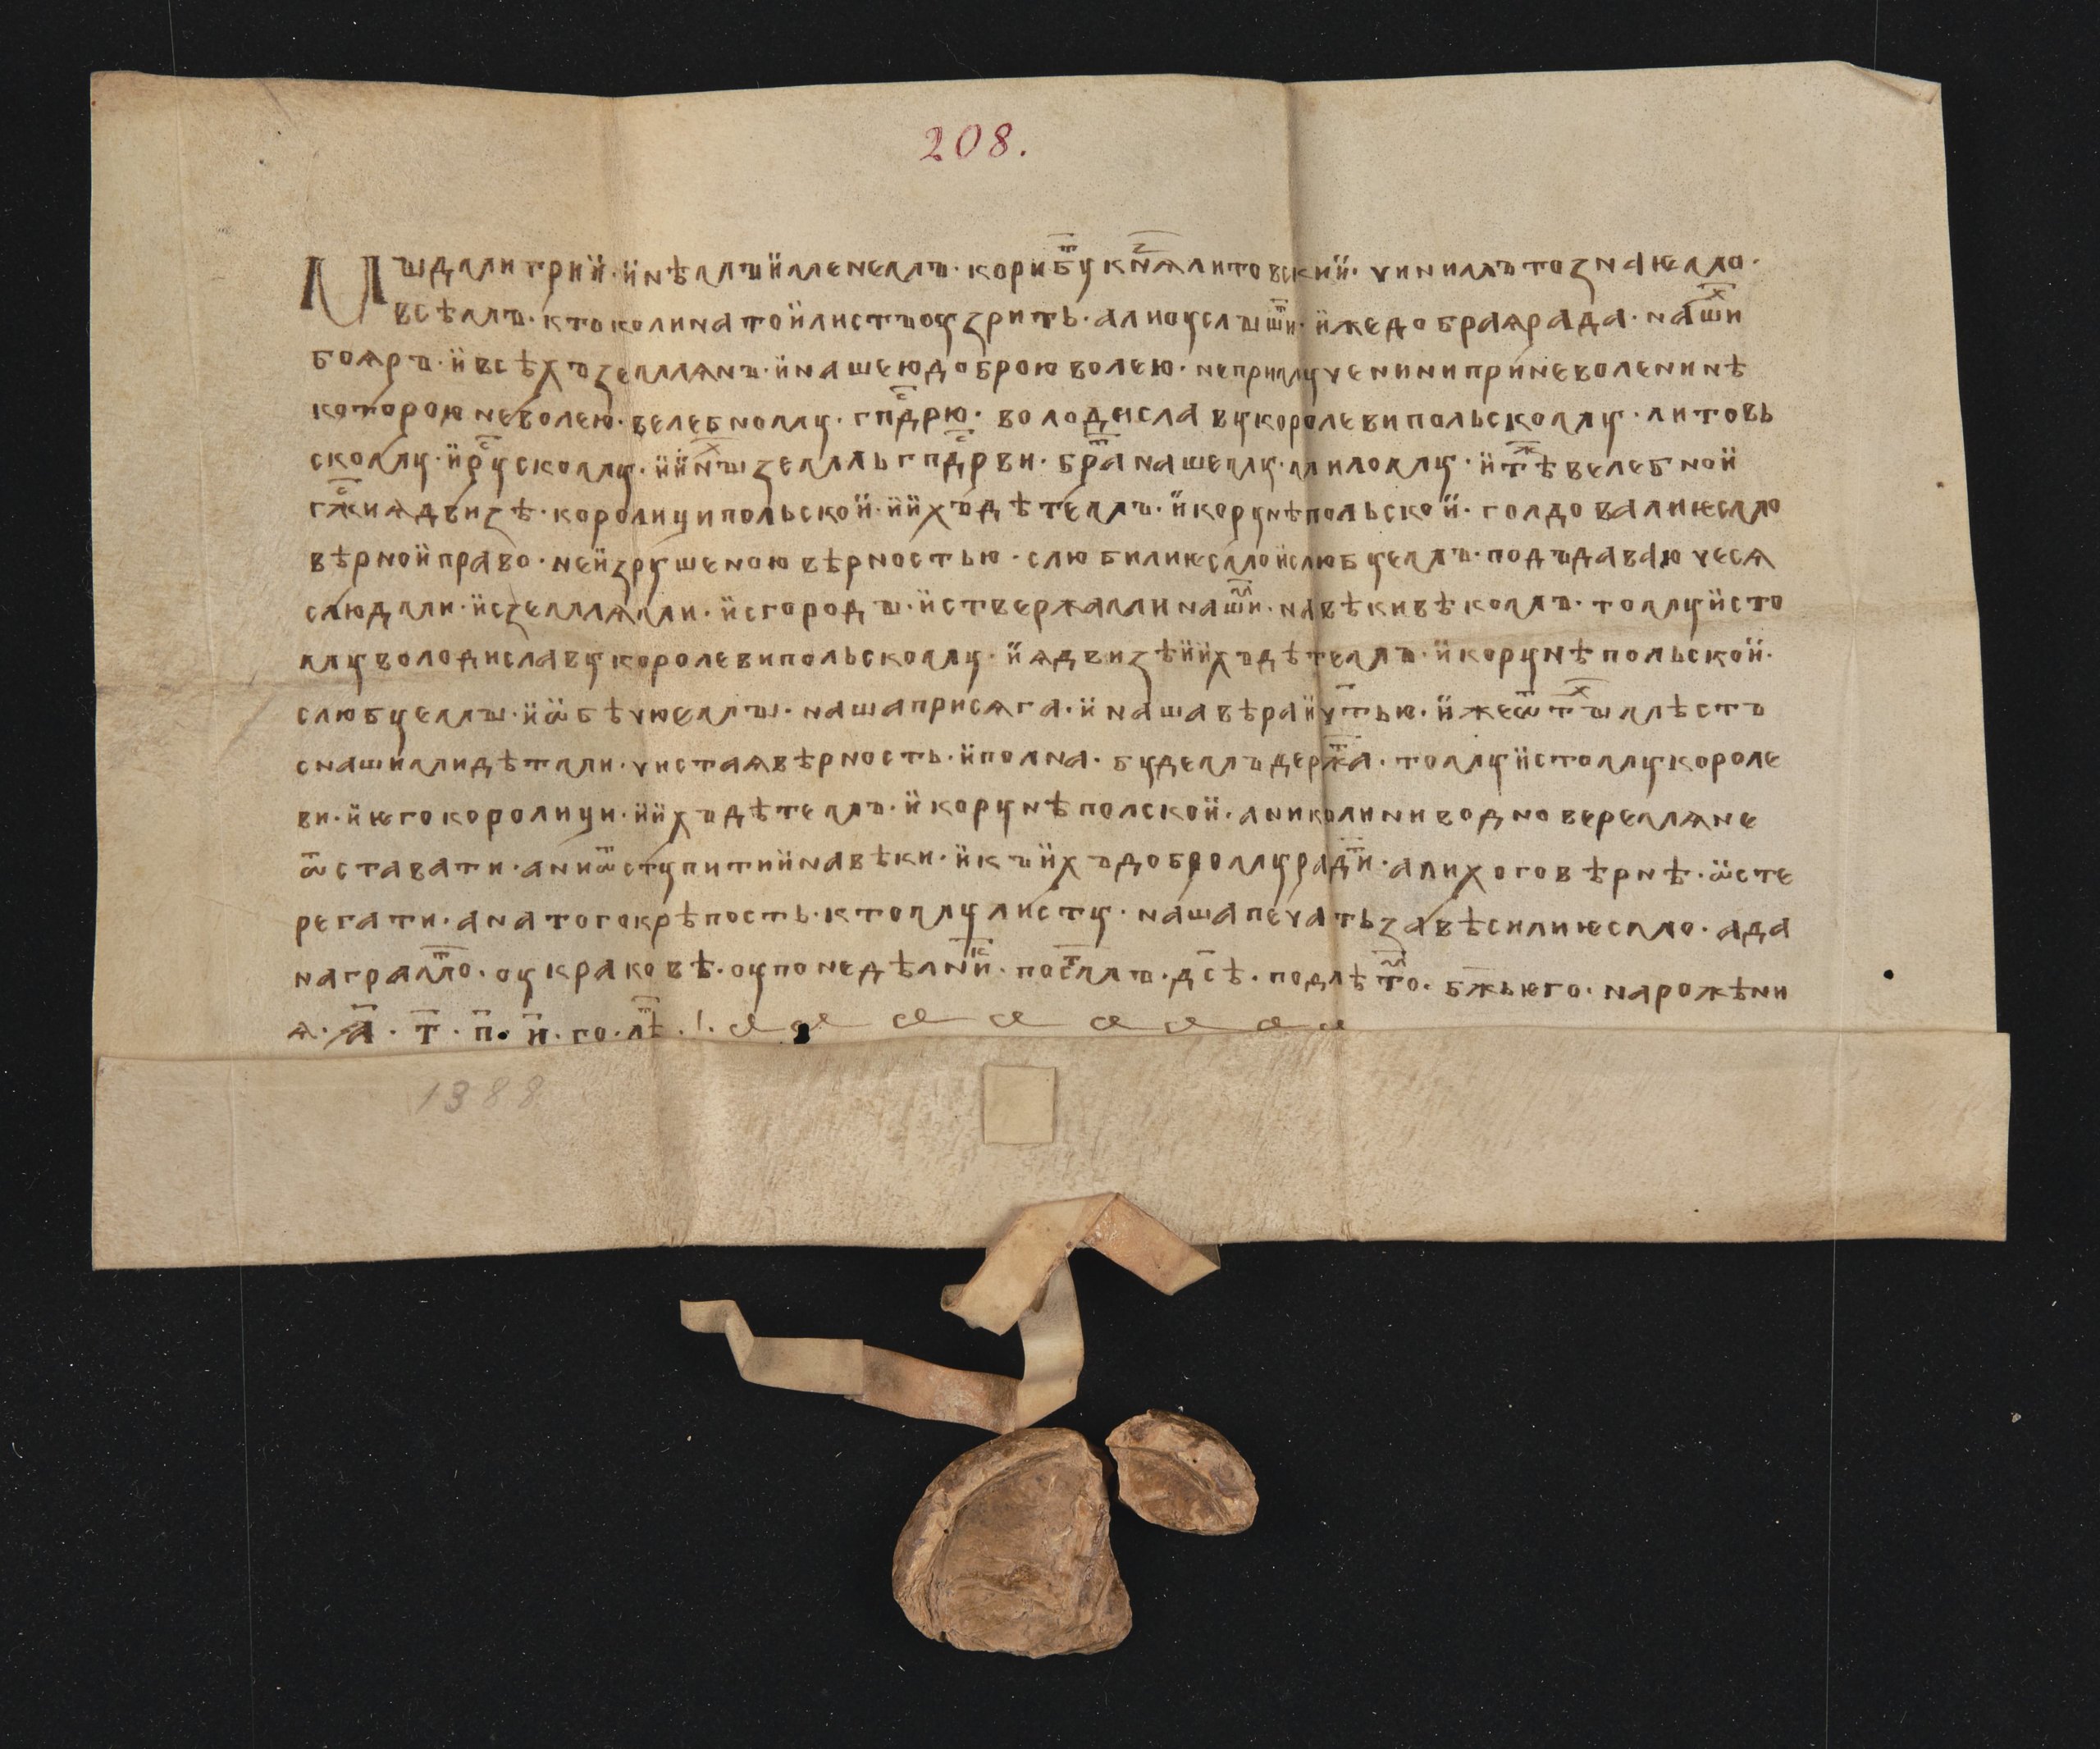 208.
Мꙑ дмитрии · ї инѣмъ їменемъ · кориб ꙋ кнѧ литовскии · чинилъ то знаѥмо ·
всѣмъ · кто коли на тои листъ оузрить · али оуслꙑши · їже добраꙗ рада · наши
боꙗръ · ї всѣхъ землѧнъ · ї нашею доброю волею · не примꙋчени ни приневолени нѣ
которою неволею · велебномꙋ · гпдрю · володиславꙋ королеви польскомꙋ · литовь
скомꙋ · ї рꙋскомꙋ · ї їнꙑ земль гпдрви · бра нашемꙋ · миломꙋ · ї тѣ велебнои
гжи ꙗдвизѣ · королици польскои · ї їхъ дѣтемъ · ї корꙋнѣ польскои · голдовали ѥсмо
вѣрнои право · неїзрꙋшеною вѣрностью · слюбили ѥсмо ї слюбꙋемъ · подъдаваючесѧ
с людми · ї с землѧми · ї с городꙑ · ї с твержами наши · на вѣки вѣкомъ · томꙋ їсто
мꙋ володиславꙋ королеви польскомꙋ · ї ꙗдвизѣ ї їхъ дѣтемъ · ї корꙋнѣ польскои ·
слюбꙋемꙑ · ї ѡбѣчюемꙑ · наша присѧга · ї наша вѣра ї чтью · їже ѿ тꙑ мѣстъ
с нашими дѣтми · чистаꙗ вѣрность · ї полна · бꙋдемъ держа · томꙋ їстомꙋ короле
ви · ї ѥго королици · ї їхъ дѣтемъ · ї корꙋнѣ полскои · а николи ни в одно веремѧ не
ѿставати · ани ѿстꙋпити ї на вѣки · ї къ їхъ доброму ради · а лихого вѣрнѣ · ѡсте
регати · а на того крѣпость · к томꙋ листꙋ · наша печать завѣсили ѥсмо · а да
на грамо · оу краковѣ · оу понедѣлни · по с млъ · дсѣ · под лѣто · бжьѥго · нарожѣни
ꙗ · ҂а · т · п · и · го · лѣ ·
1388